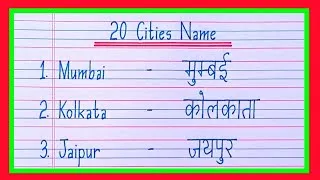 20 Cities Name
1. Mumbai - मुम्बई
2. Kolkata - कोलकाता
3. Jaipur - जयपुर